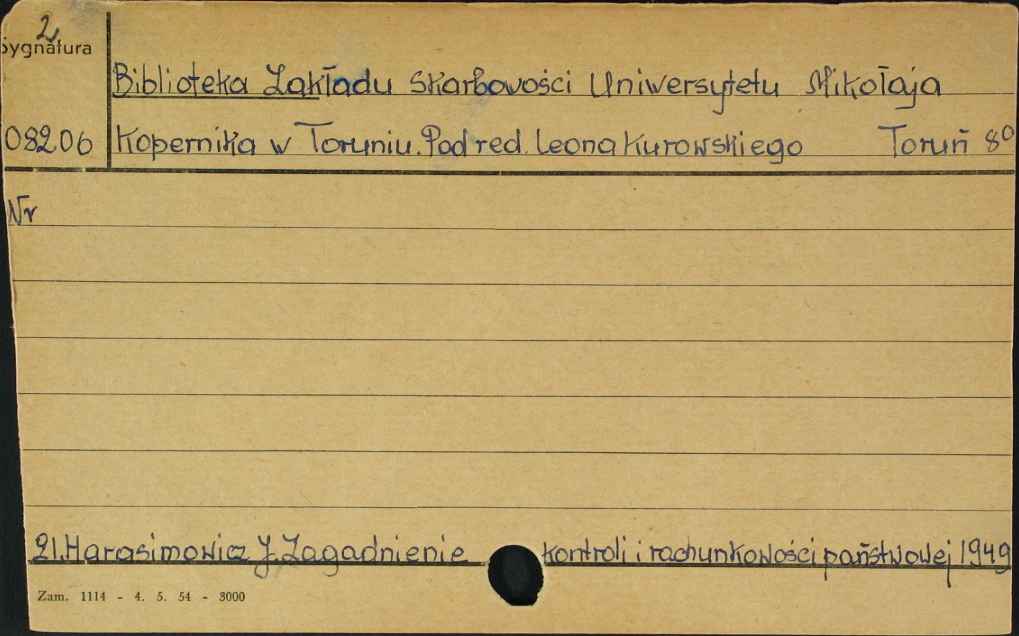 2
Sygnatura
Biblioteka Zakładu Skarbowości Uniwersytetu Mikołaja
08206 Kopernika w Toruniu. Pod red. Leona Kurowskiego Toruń 8°
Nr
21. Harasimowicz J. Zagadnienie kontroli i rachunkowości państwowej 1949
Zam. 1114 - 4. 5. 54 - 3000